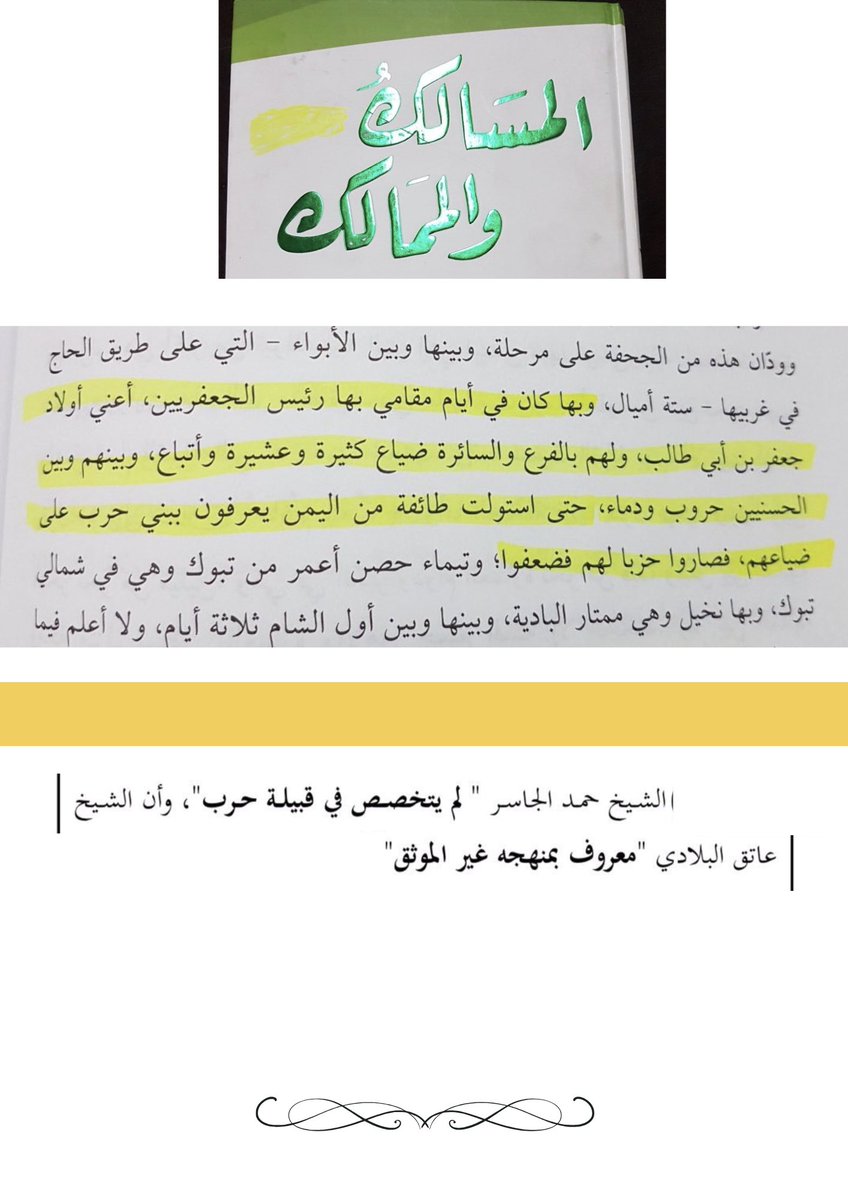 المسَالكُ
والممَالك
وودّان هذه من الجحفة على مرحلة، وبينها وبين الأبواء – التي على طريق الحاج
في غربيها – ستة أميال، وبها كان في أيام مقامي بها رئيس الجعفريين، أعني أولاد
جعفر بن أبي طالب، ولهم بالفرع والسائرة ضياع كثيرة وعشيرة وأتباع، وبينهم وبين
الحسنيين حروب ودماء، حتى استولت طائفة من اليمن يعرفون ببني حرب على
ضياعهم، فصاروا حزبا لهم فضعفوا؛ وتيماء حصن أعمر من تبوك وهي في شمالي
تبوك، وبها نخيل وهي ممتار البادية، وبينها وبين أول الشام ثلاثة أيام، ولا أعلم فيما
الشيخ حمد الجاسر " لم يتخصص في قبيلة حرب"، وأن الشيخ
عاتق البلادي "معروف بمنهجه غير الموثق"